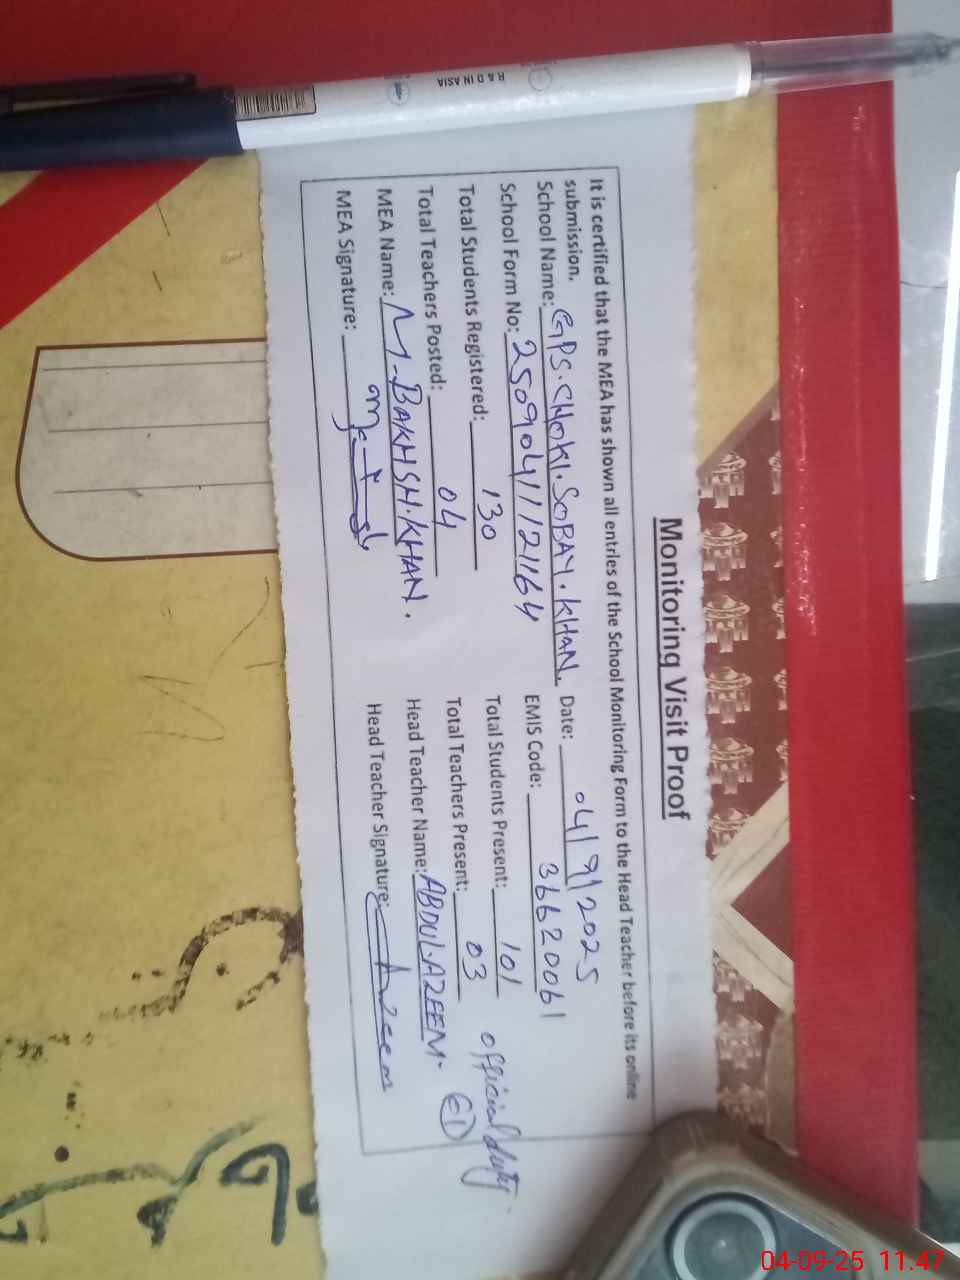 Monitoring Visit Proof
It is certified that the MEA has shown all entries of the School Monitoring Form to the Head Teacher before its online
submission.
School Name: GPS.CHOKI.SOBAY.KHAN. Date: 04/9/2025
School Form No: 25090411121164 EMIS Code: 36620061
Total Students Registered: 130 Total Students Present: 101
Total Teachers Posted: 04 Total Teachers Present: 03 official duty
MEA Name: M-BAKHSH.KHAN. Head Teacher Name: ABDUL.AZEEM.
MEA Signature: Head Teacher Signature: Azeem
IN ASIA
04-09-25 11:47